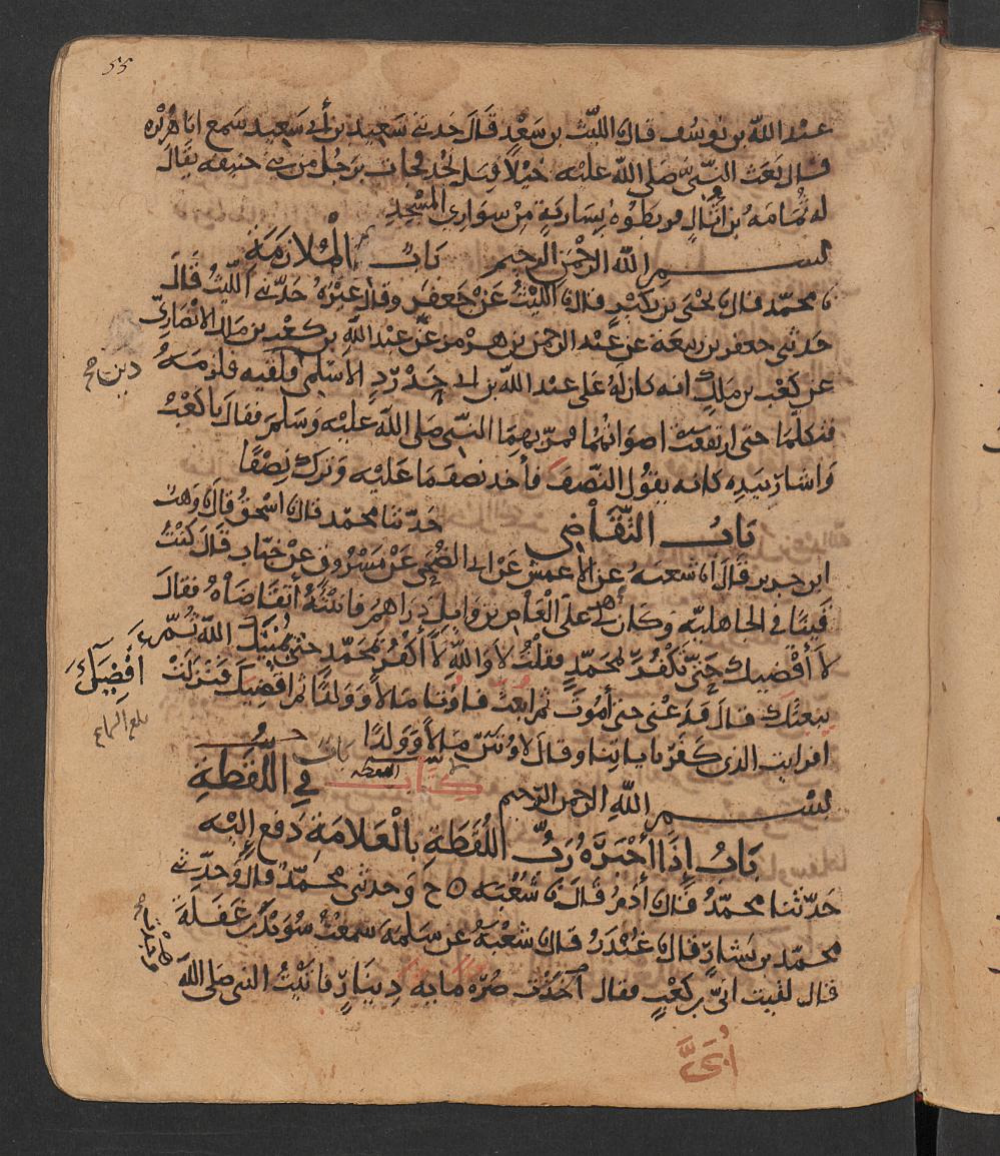 55
عبد الله بن يوسف قال نا الليث بن سعد قال حدثني سعيد بن أبي سعيد سمع ابا هريرة
قال بعث النبي صلى الله عليه خيلا قبل نجد فجات برجل من بني حنيفه يقال
له ثمامه بن أثال فربطوه بسارية من سواري المسجد
بسم الله الرحمن الرحيم باب الملازمة
نا محمد قال نا يحيى بن بكير قال نا الليث عن جعفر وقال غيره حدثني الليث قال
حدثني جعفر بن ربيعة عن عبد الرحمن بن هرمز عن عبد الله بن كعب بن مالك الانصاري
عن كعب بن ملك انه كان له على عبد الله بن ابي حدرد الاسلمي فلقيه فلزمه
دين صح
فتكلما حتى ارتفعت اصواتهما فمر بهما النبي صلى الله عليه وسلم فقال يا كعب
واشار بيده كانه يقول النصف فأخذ نصف ما عليه وترك نصفا
باب التقاضي حدثنا محمد قال نا اسحق قال نا وهب
ابن جرير قال انا شعبه عن الأعمش عن ابي الضحى عن مسروق عن خباب قال كنت
قينا في الجاهلية وكان لي على العاص بن وايل دراهم فاتيته أتقاضاه فقال
لا أقضيك حتى تكفر بمحمد فقلت لا والله لا أكفر بمحمد حتى يميتك الله ثم
يبعثك قال فدعني حتى أموت ثم ابعث فاوتا مالا وولدا ثم اقضيك فنزلت
أقضيك
بلغ السماع
افرايت الذي كفر باياتنا وقال لاوتين مالا وولدا
كتاب في اللقطة
بسم الله الرحمن الرحيم
باب إذا أخبره رب اللقطة بالعلامة دفع إليه
حدثنا محمد قال نا أدم قال نا شعبه ح وحدثني محمد قال وحدثني
محمد بن بشار قال نا غندر قال نا شعبة عن سلمه سمعت سويد بن غفلة
قال لقيت ابي بن كعب فقال اخذت صره مايه دينار فاتيت النبي صلى الله
أبي